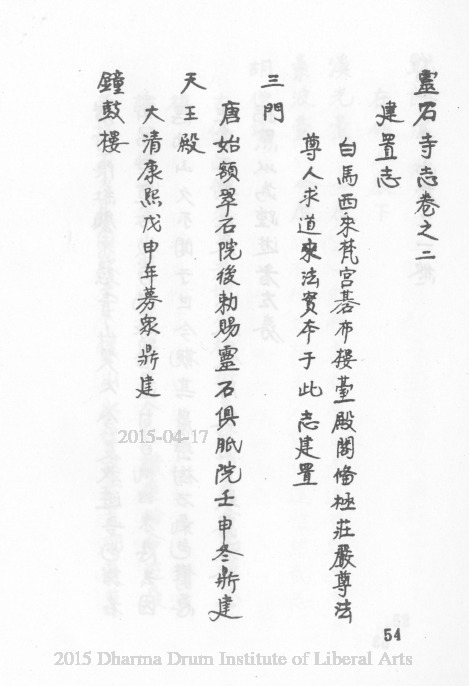 靈石寺志卷之二
建置志
白馬西來梵宮碁布楼臺殿閣备極莊嚴尊法
尊人求道來法實本于此志建置
三門
唐始額翠石院後勅賜靈石俱胝院壬申冬鼎建
天王殿
大清康熙戊申年募衆鼎建
鐘鼓樓
2015-04-17
54
2015 Dharma Drum Institute of Liberal Arts